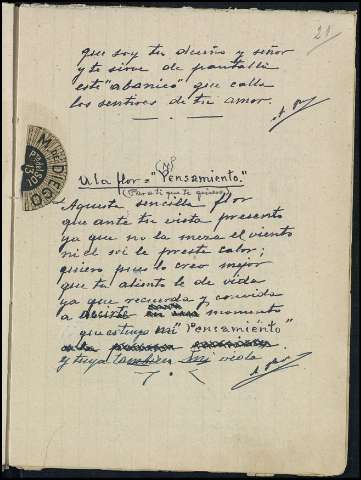 21
que soy tu dueño y señor
y te sirve de pantalla
este "abanico" que calla
los sentires de tu amor.
M. DIEGO
A la flor = "Pensamiento."
(Para ti que te quiero)
Aquesta sencilla flor
que ante tu vista presento
ya que no la meza el viento
ni el sol le preste calor;
quiero pues lo creo mejor
que tu aliento le de vida
ya que recuerda y convida
a decirte en un momento
que es tuyo mi "Pensamiento"
y tuya también mi vida